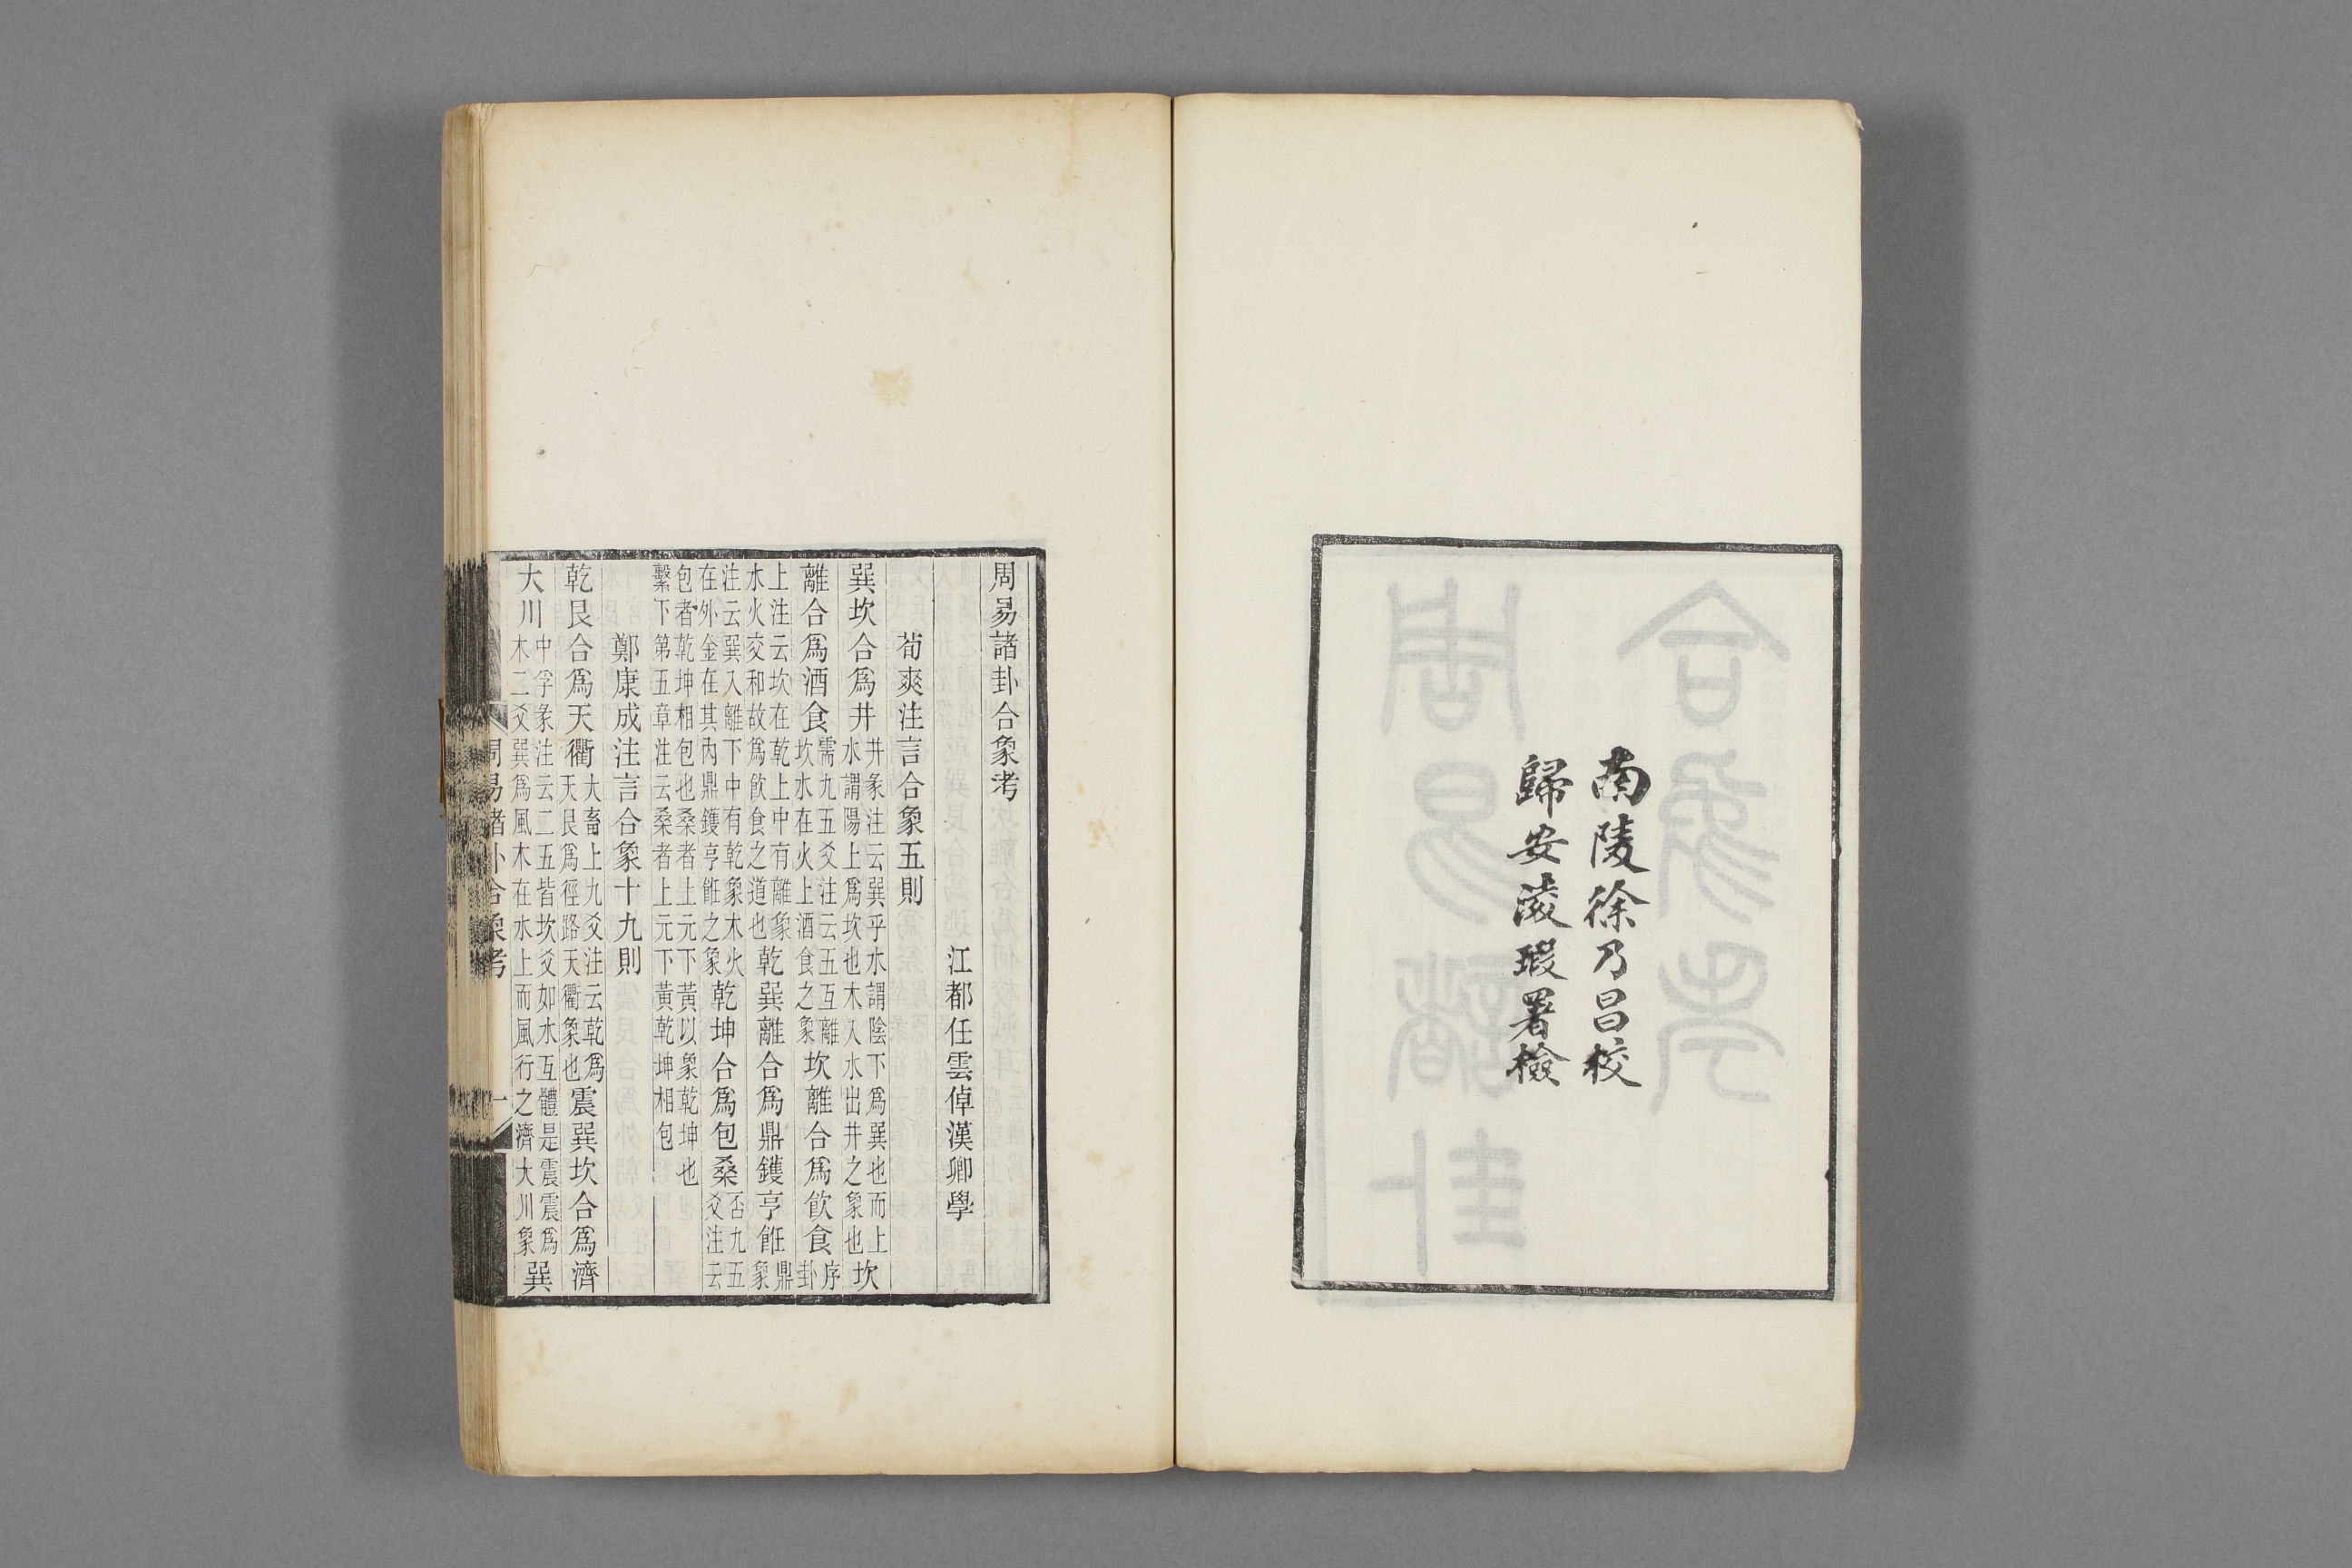 南陵徐乃昌校
歸安淩瑕署檢
周易諸卦合象考
江都任雲倬漢卿學
荀爽注言合象五則
巽坎合爲井井彖注云巽乎水謂陰下爲巽也而上水謂陽上爲坎也木入水出井之象也坎
離合爲酒食需九五爻注云五互離坎水在火上酒食之象坎離合爲飲食序卦
上注云坎在乾上中有離象水火交和故爲飲食之道也乾巽離合爲鼎鑊亨飪鼎彖
注云巽入離下中有乾象木火在外金在其內鼎鑊亨飪之象乾坤合爲包桑否九五爻注云
包者乾坤相包也桑者上元下黃以象乾坤也繫下第五章注云桑者上元下黃乾坤相包
鄭康成注言合象十九則
乾艮合爲天衢大畜上九爻注云乾爲天艮爲徑路天衢象也震巽坎合爲濟
大川中孚彖注云二五皆坎爻如水互體是震震爲木二爻巽爲風木在水上而風行之濟大川象巽
周易諸卦合象考 一